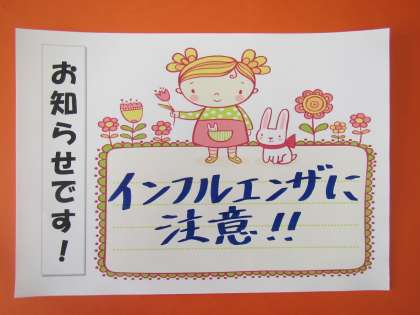 お知らせです!
インフルエンザに
注意!!